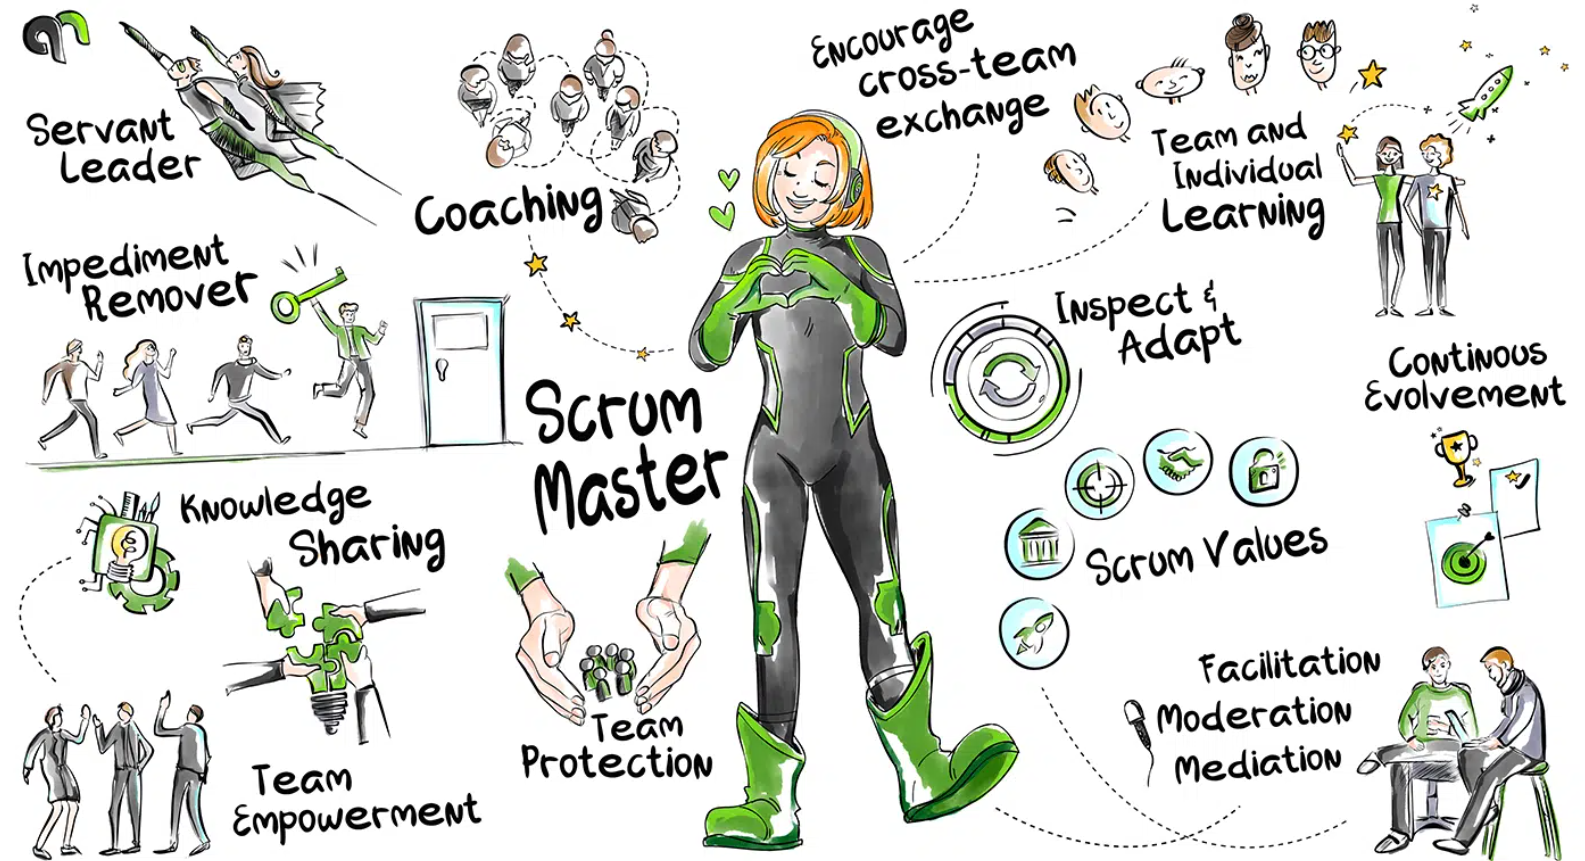 Servant
Leader
Coaching
Encourage
cross-team
exchange
Team and
Individual
Learning
Impediment
Remover
Inspect &
Adapt
Continous
Evolvement
Scrum
Master
Knowledge
Sharing
Scrum Values
Team
Protection
Facilitation
Moderation
Mediation
Team
Empowerment